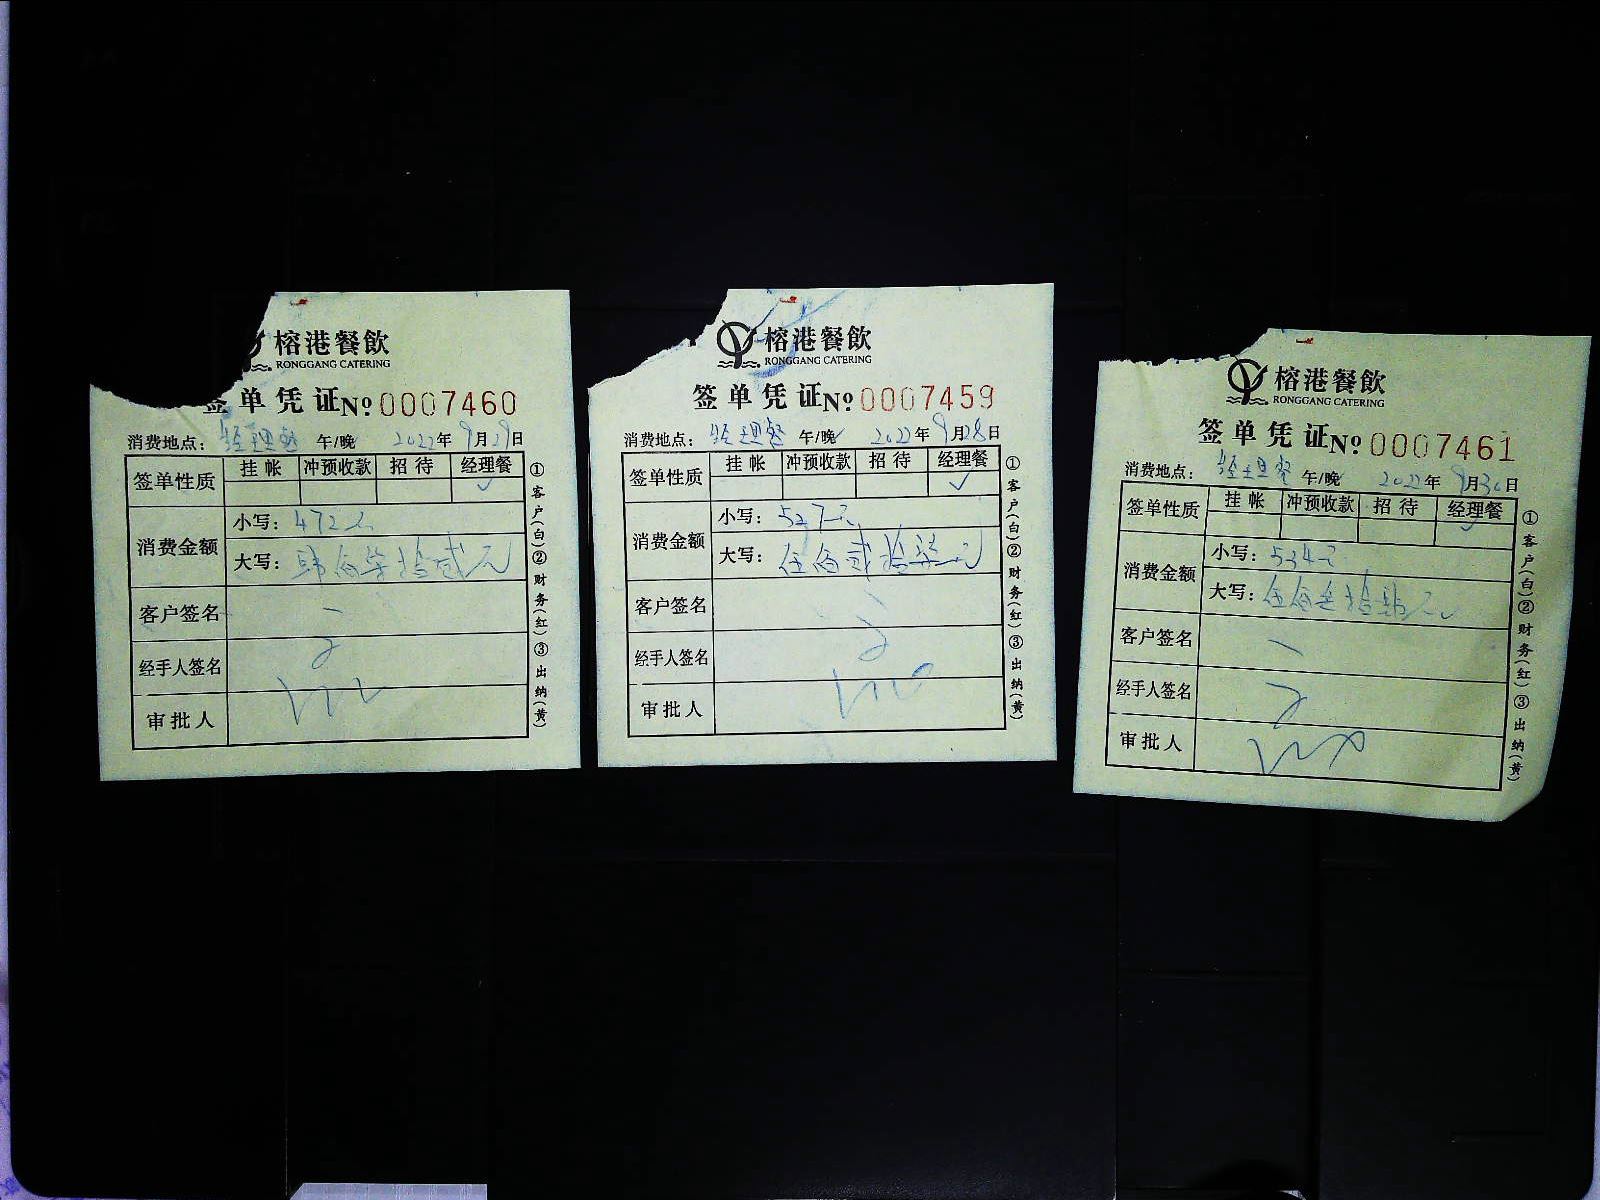 榕港餐飲
RONGGANG CATERING
签单凭证№0007460
消费地点：经理餐 午/晚 2022年9月29日
签单性质 挂帐 冲预收款 招待 经理餐
✓
消费金额
小写：472元
大写：肆佰柒拾贰元
客户签名
经手人签名
审批人
①客户(白)②财务(红)③出纳(黄)
榕港餐飲
RONGGANG CATERING
签单凭证№0007459
消费地点：经理餐 午/晚 2022年9月28日
签单性质 挂帐 冲预收款 招待 经理餐
✓
消费金额
小写：527元
大写：伍佰贰拾柒元
客户签名
经手人签名
审批人
①客户(白)②财务(红)③出纳(黄)
榕港餐飲
RONGGANG CATERING
签单凭证№0007461
消费地点：经理餐 午/晚 2022年9月30日
签单性质 挂帐 冲预收款 招待 经理餐
✓
消费金额
小写：534元
大写：伍佰叁拾肆元
客户签名
经手人签名
审批人
①客户(白)②财务(红)③出纳(黄)